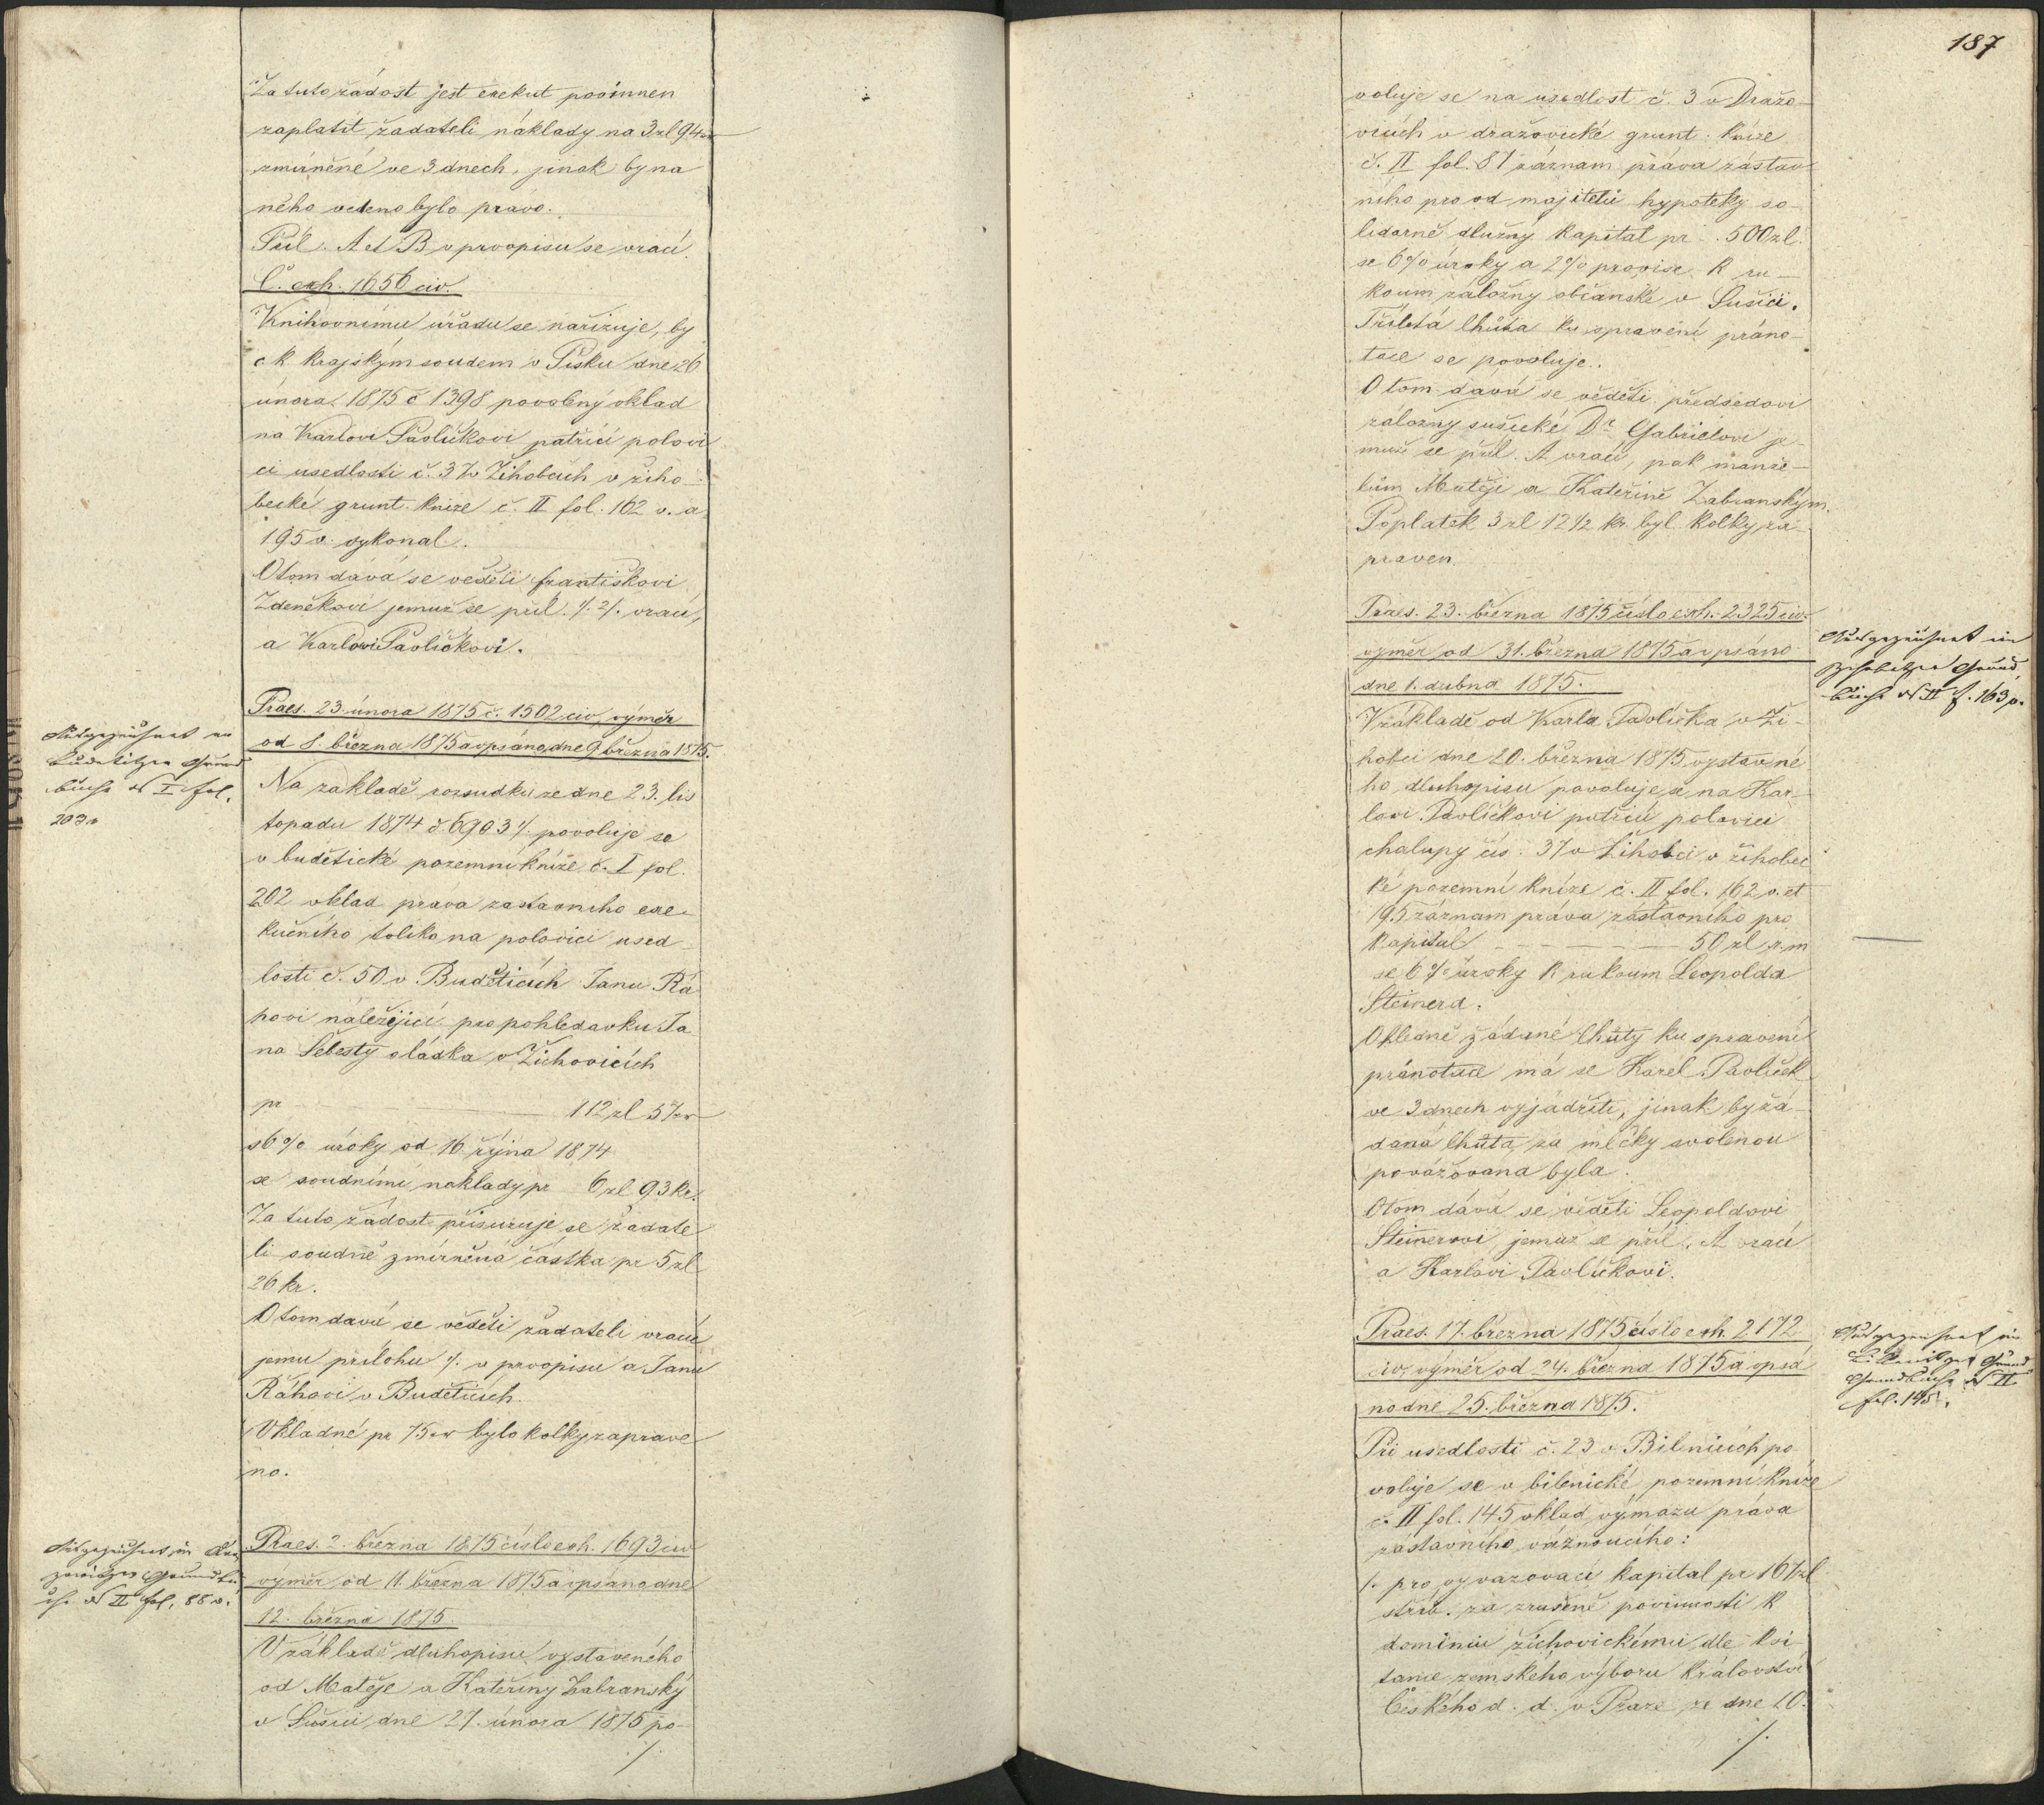 Za tuto žádost jest exekut povinnen
zaplatit žadateli náklady na 3 zl 94 kr
zmírněné ve 3 dnech, jinak by na
něho vedeno bylo právo.
Příl. A et B v prvopisu se vrací.
Č. exh. 1656 civ.
Knihovnímu úřadu se nařizuje, by
c k krajským soudem v Písku dne 26
února 1875 č 1398 povolený vklad
na Karlovi Pavlíčkovi patřící polovi
ci usedlosti č. 37 v Žihobcích v žiho-
becké grunt. knize č. II fol. 162 v. a
195 v. vykonal.
O tom dává se věděti Františkovi
Zdeněkovi jemuž se příl. ·/. 2/. vrací,
a Karlovi Pavlíčkovi.
Praes. 23. února 1875 č. 1502 civ, výměr
od 8. března 1875 a vpsáno dne 9 března 1875.
Ausgezeichnet im
Budetitzer Grund
buche N I fol.
203.
Na základě rozsudku ze dne 23. lis
topadu 1874 č 6903 ·/. povoluje se
v budětické pozemní knize č. I fol.
202 vklad práva zástavního exe-
kučního toliko na polovici used-
losti č. 50 v Budětících Janu Rá
hovi náležející pro pohledavku Ja
na Šebesty sládka v Žichovicích
pr — 112 zl 57 kr
s 6% úroky od 16 října 1874
se soudními náklady pr 6 zl 93 kr.
Za tuto žádost přisuzuje se žadate
li soudně zmírněná částka pr 5 zl
26 kr.
O tom dává se věděti žadateli vracíc
jemu přílohu ·/. v prvopisu a Janu
Ráhovi v Budětících.
Vkladné pr 75 kr bylo kolky zaprave
no.
Praes. 2. března 1875 číslo exh. 1693 civ
výměr od 11. března 1875 a vpsáno dne
12. března 1875.
Ausgezeichnet im
Grundbu
che N II fol. 88 v.
V základě dluhopisu vystaveného
od Matěje a Kateřiny Zabranský
v Sušici dne 27. února 1875 po-
·/.
187
voluje se na usedlost č. 3 v Dražo-
vicích v dražovické grunt. knize
č. II fol. 87 záznam práva zástav
ního pro od majitelů hypoteky so-
lidarně dlužný kapital pr. 500 zl.
se 6% úroky a 2% provise k ru-
koum záložny občanské v Sušici.
Tříletá lhůta ku spravení práno-
tace se povoluje.
O tom dává se věděti předsedovi
záložny sušické Dr Gabrielovi je-
muž se příl. A vrací, pak manže-
lům Matěji a Kateřině Zabranským.
Poplatek 3 zl 12 1/2 kr. byl kolky za-
praven.
Praes. 23. března 1875 číslo exh. 2325 civ.
výměr od 31. března 1875 a vpsáno
dne 1. dubna 1875.
Ausgezeichnet im
Schihobetzer Grund
buche N II f. 163 v.
V základě od Karla Pavlíčka v Ži-
hobci dne 20. března 1875 vystavené
ho dluhopisu povoluje se na Kar-
lovi Pavlíčkovi patřící polovici
chalupy čís. 37 v Žihobci v žihobec
ké pozemní knize č. II fol. 162 v. et
195 záznam práva zástavního pro
kapital — 50 zl r. m
se 6% úroky k rukoum Leopolda
Steinera.
Ohledně žádané lhůty ku spravení
pránotace má se Karel Pavlíček
ve 3 dnech vyjádřiti, jinak by žá-
daná lhůta za mlčky svolenou
považována byla.
O tom dává se věděti Leopoldovi
Steinerovi, jemuž se příl. A vrací
a Karlovi Pavlíčkovi.
Praes. 17. března 1875 číslo exh. 2172
civ, výměr od 24. března 1875 a vpsá
no dne 25. března 1875.
Ausgezeichnet im
Grundbuche N II
fol. 145.
Při usedlosti č. 23 v Bilenicích po-
voluje se v bilenické pozemní knize
č. II fol. 145 vklad výmazu práva
zástavního váznoucího:
1. pro vyvazovací kapital pr 167 zl
stříb. za zrušené povinnosti k
dominiu žichovickému dle kvi-
tance zemského výboru království
Českého d. d. v Praze ze dne 10.
·/.